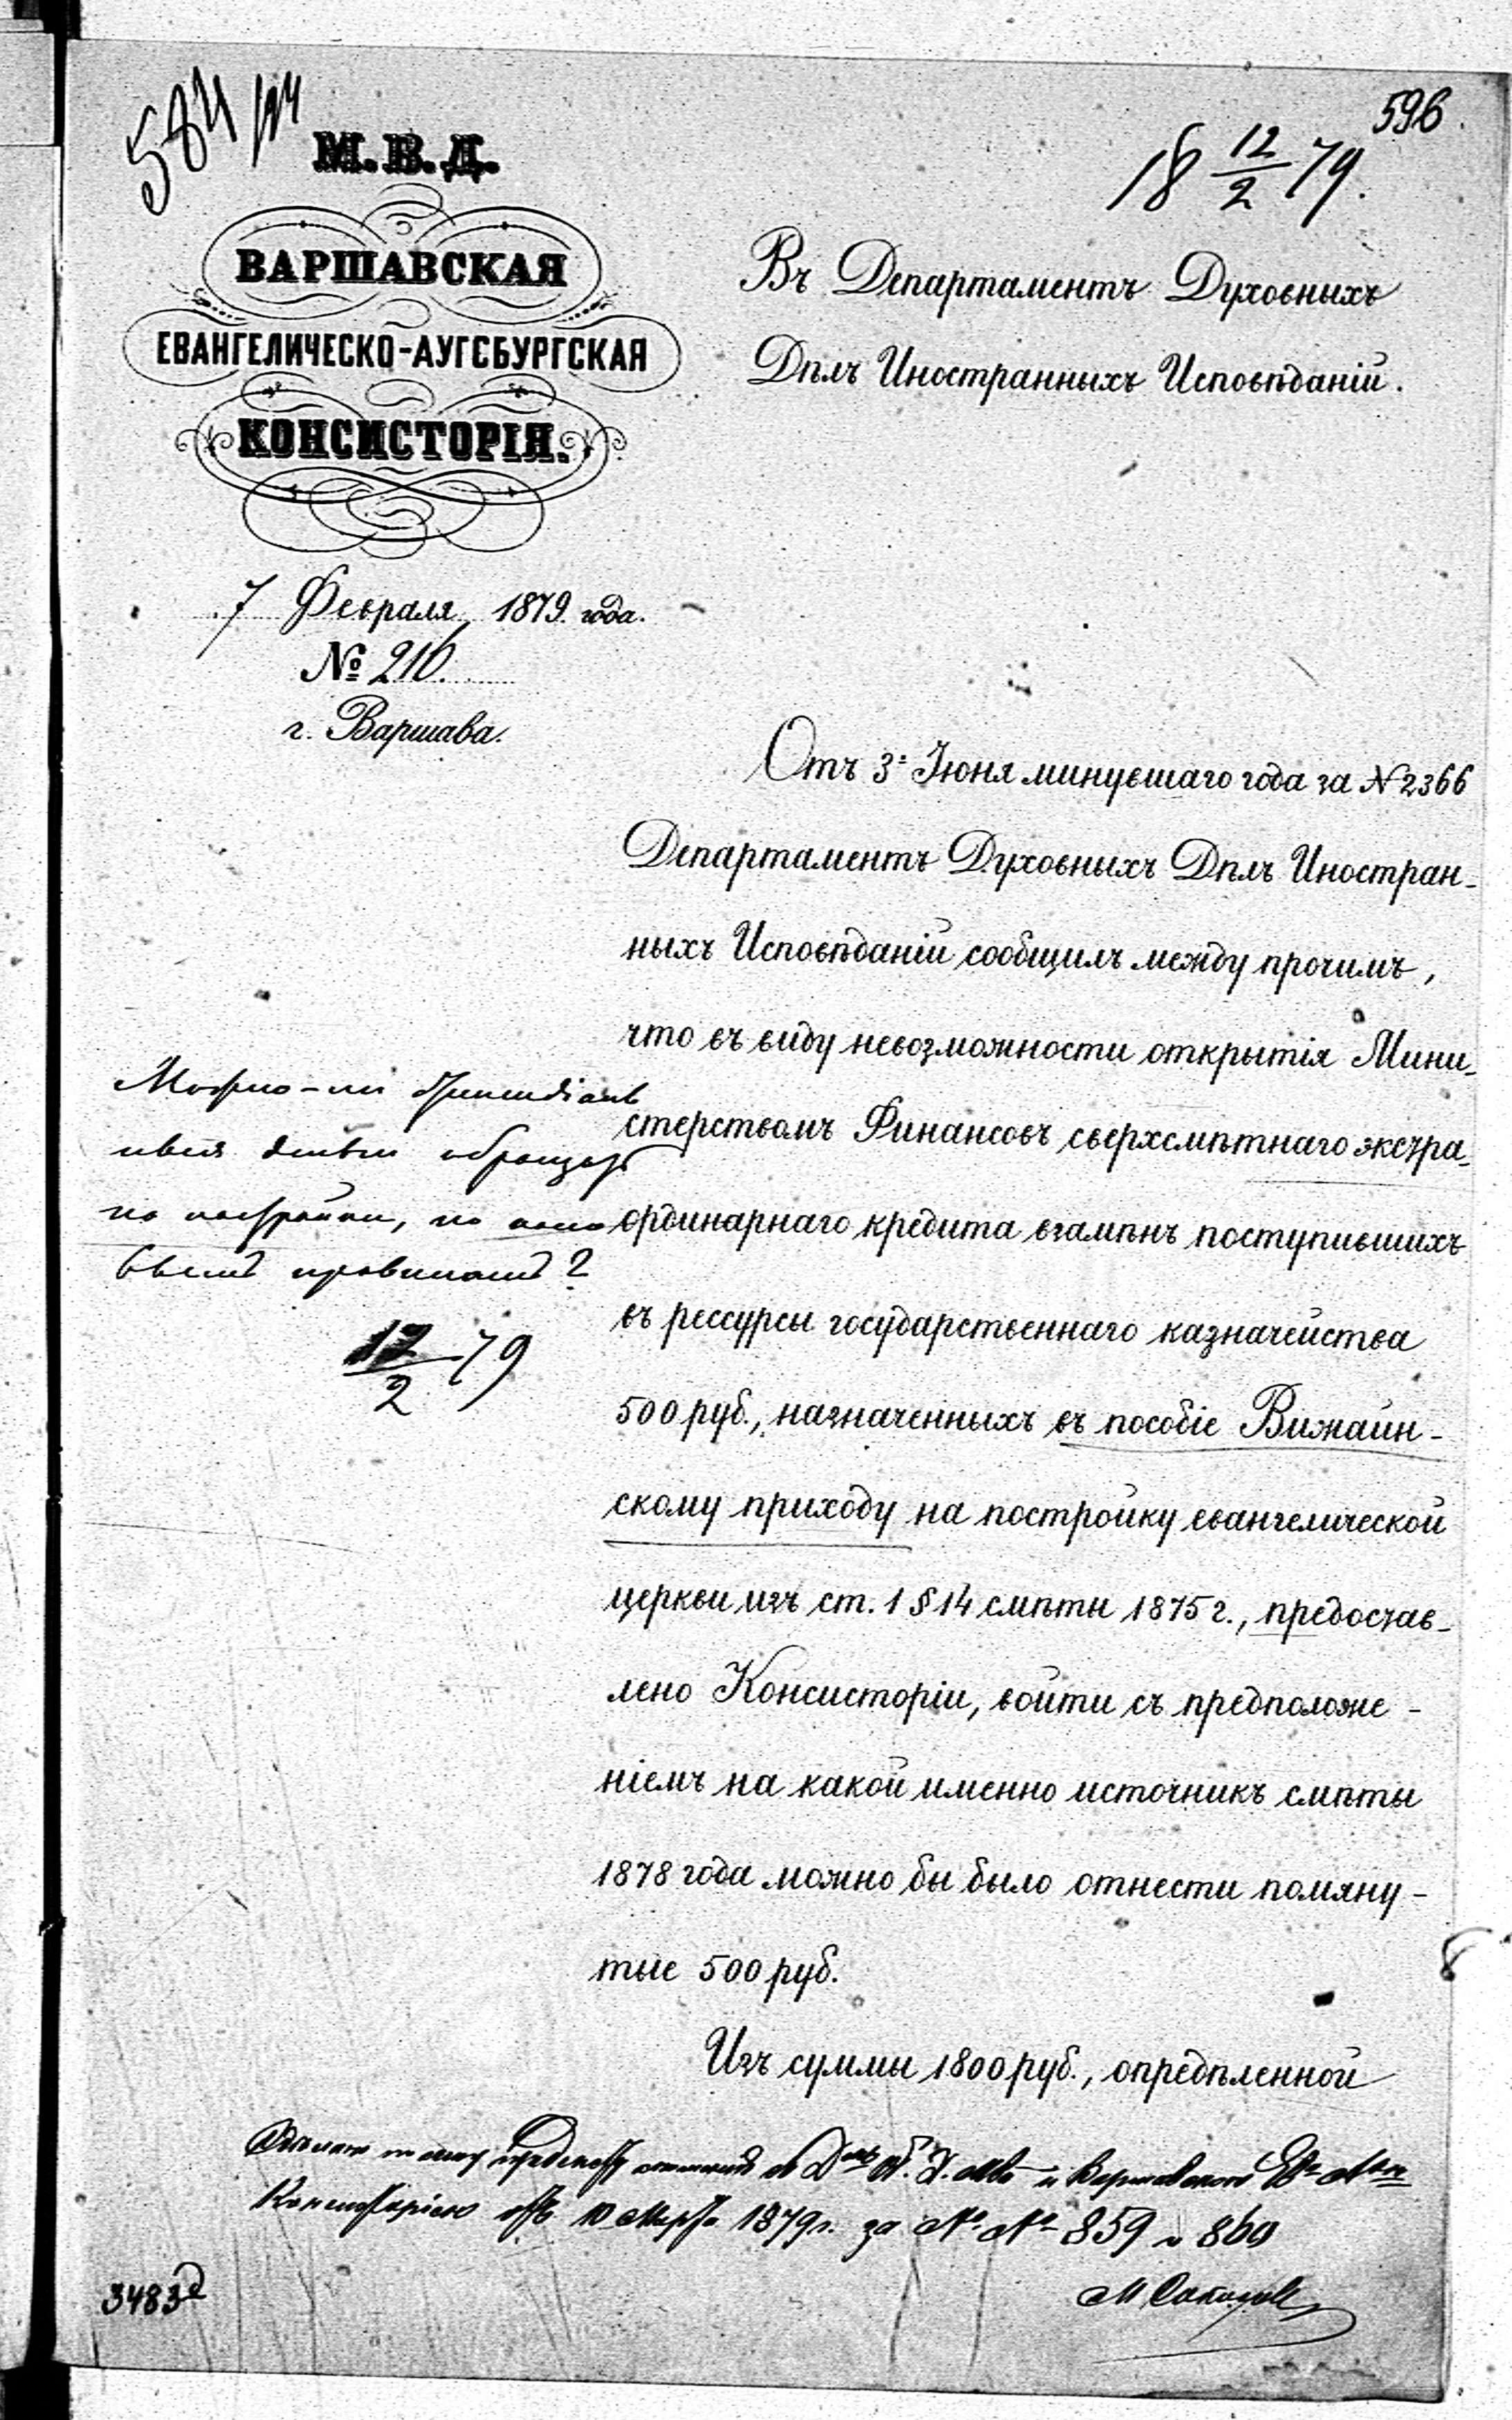 584
596
18 12/2 79.
М. В. Д.
ВАРШАВСКАЯ
ЕВАНГЕЛИЧЕСКО-АУГСБУРГСКАЯ
КОНСИСТОРІЯ.
7 Февраля 1879. года.
№ 216.
г. Варшава.
Въ Департаментъ Духовныхъ
Дѣлъ Иностранныхъ Исповѣданій.
Отъ 3. Іюня минувшаго года за № 2366
Департаментъ Духовныхъ Дѣлъ Иностран-
ныхъ Исповѣданій сообщилъ между прочимъ,
что въ виду невозможности открытія Мини-
стерствомъ Финансовъ сверхсмѣтнаго экстра-
ординарнаго кредита взамѣнъ поступившихъ
въ рессурсы государственнаго казначейства
500 руб., назначенныхъ въ пособіе Вижайн-
скому приходу на постройку евангелической
церкви изъ ст. 1 § 14 смѣты 1875 г., предостав-
лено Консисторіи, войти съ предположе-
ніемъ на какой именно источникъ смѣты
1878 года можно бы было отнести помяну-
тые 500 руб.
Изъ суммы 1800 руб., опредѣленной
Можно-ли
деньги обращать
на постройки, на
12/2 79
Консисторіею отъ 10 Марта 1879 г. за № № 859 и 860
3483